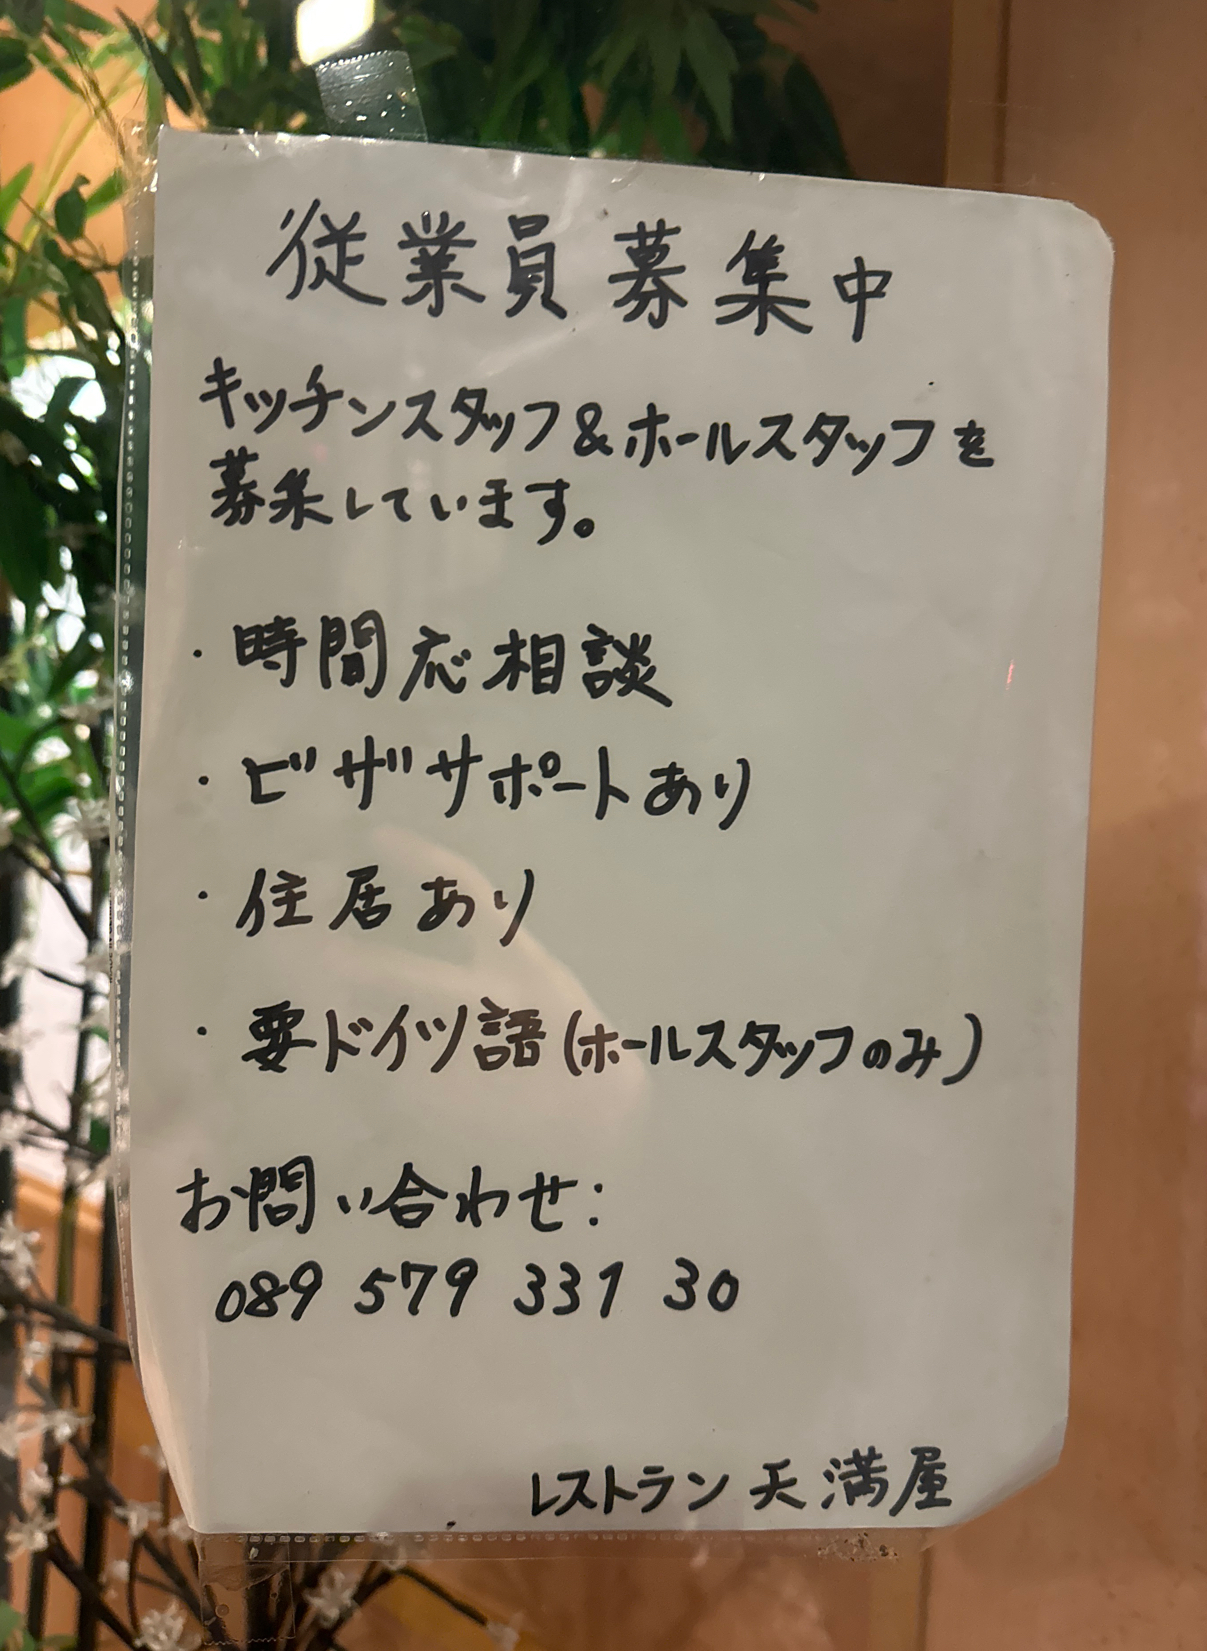 従業員募集中
キッチンスタッフ&ホールスタッフを
募集しています。
・時間応相談
・ビザサポートあり
・住居あり
・要ドイツ語(ホールスタッフのみ)
お問い合わせ:
089 579 331 30
レストラン天満屋